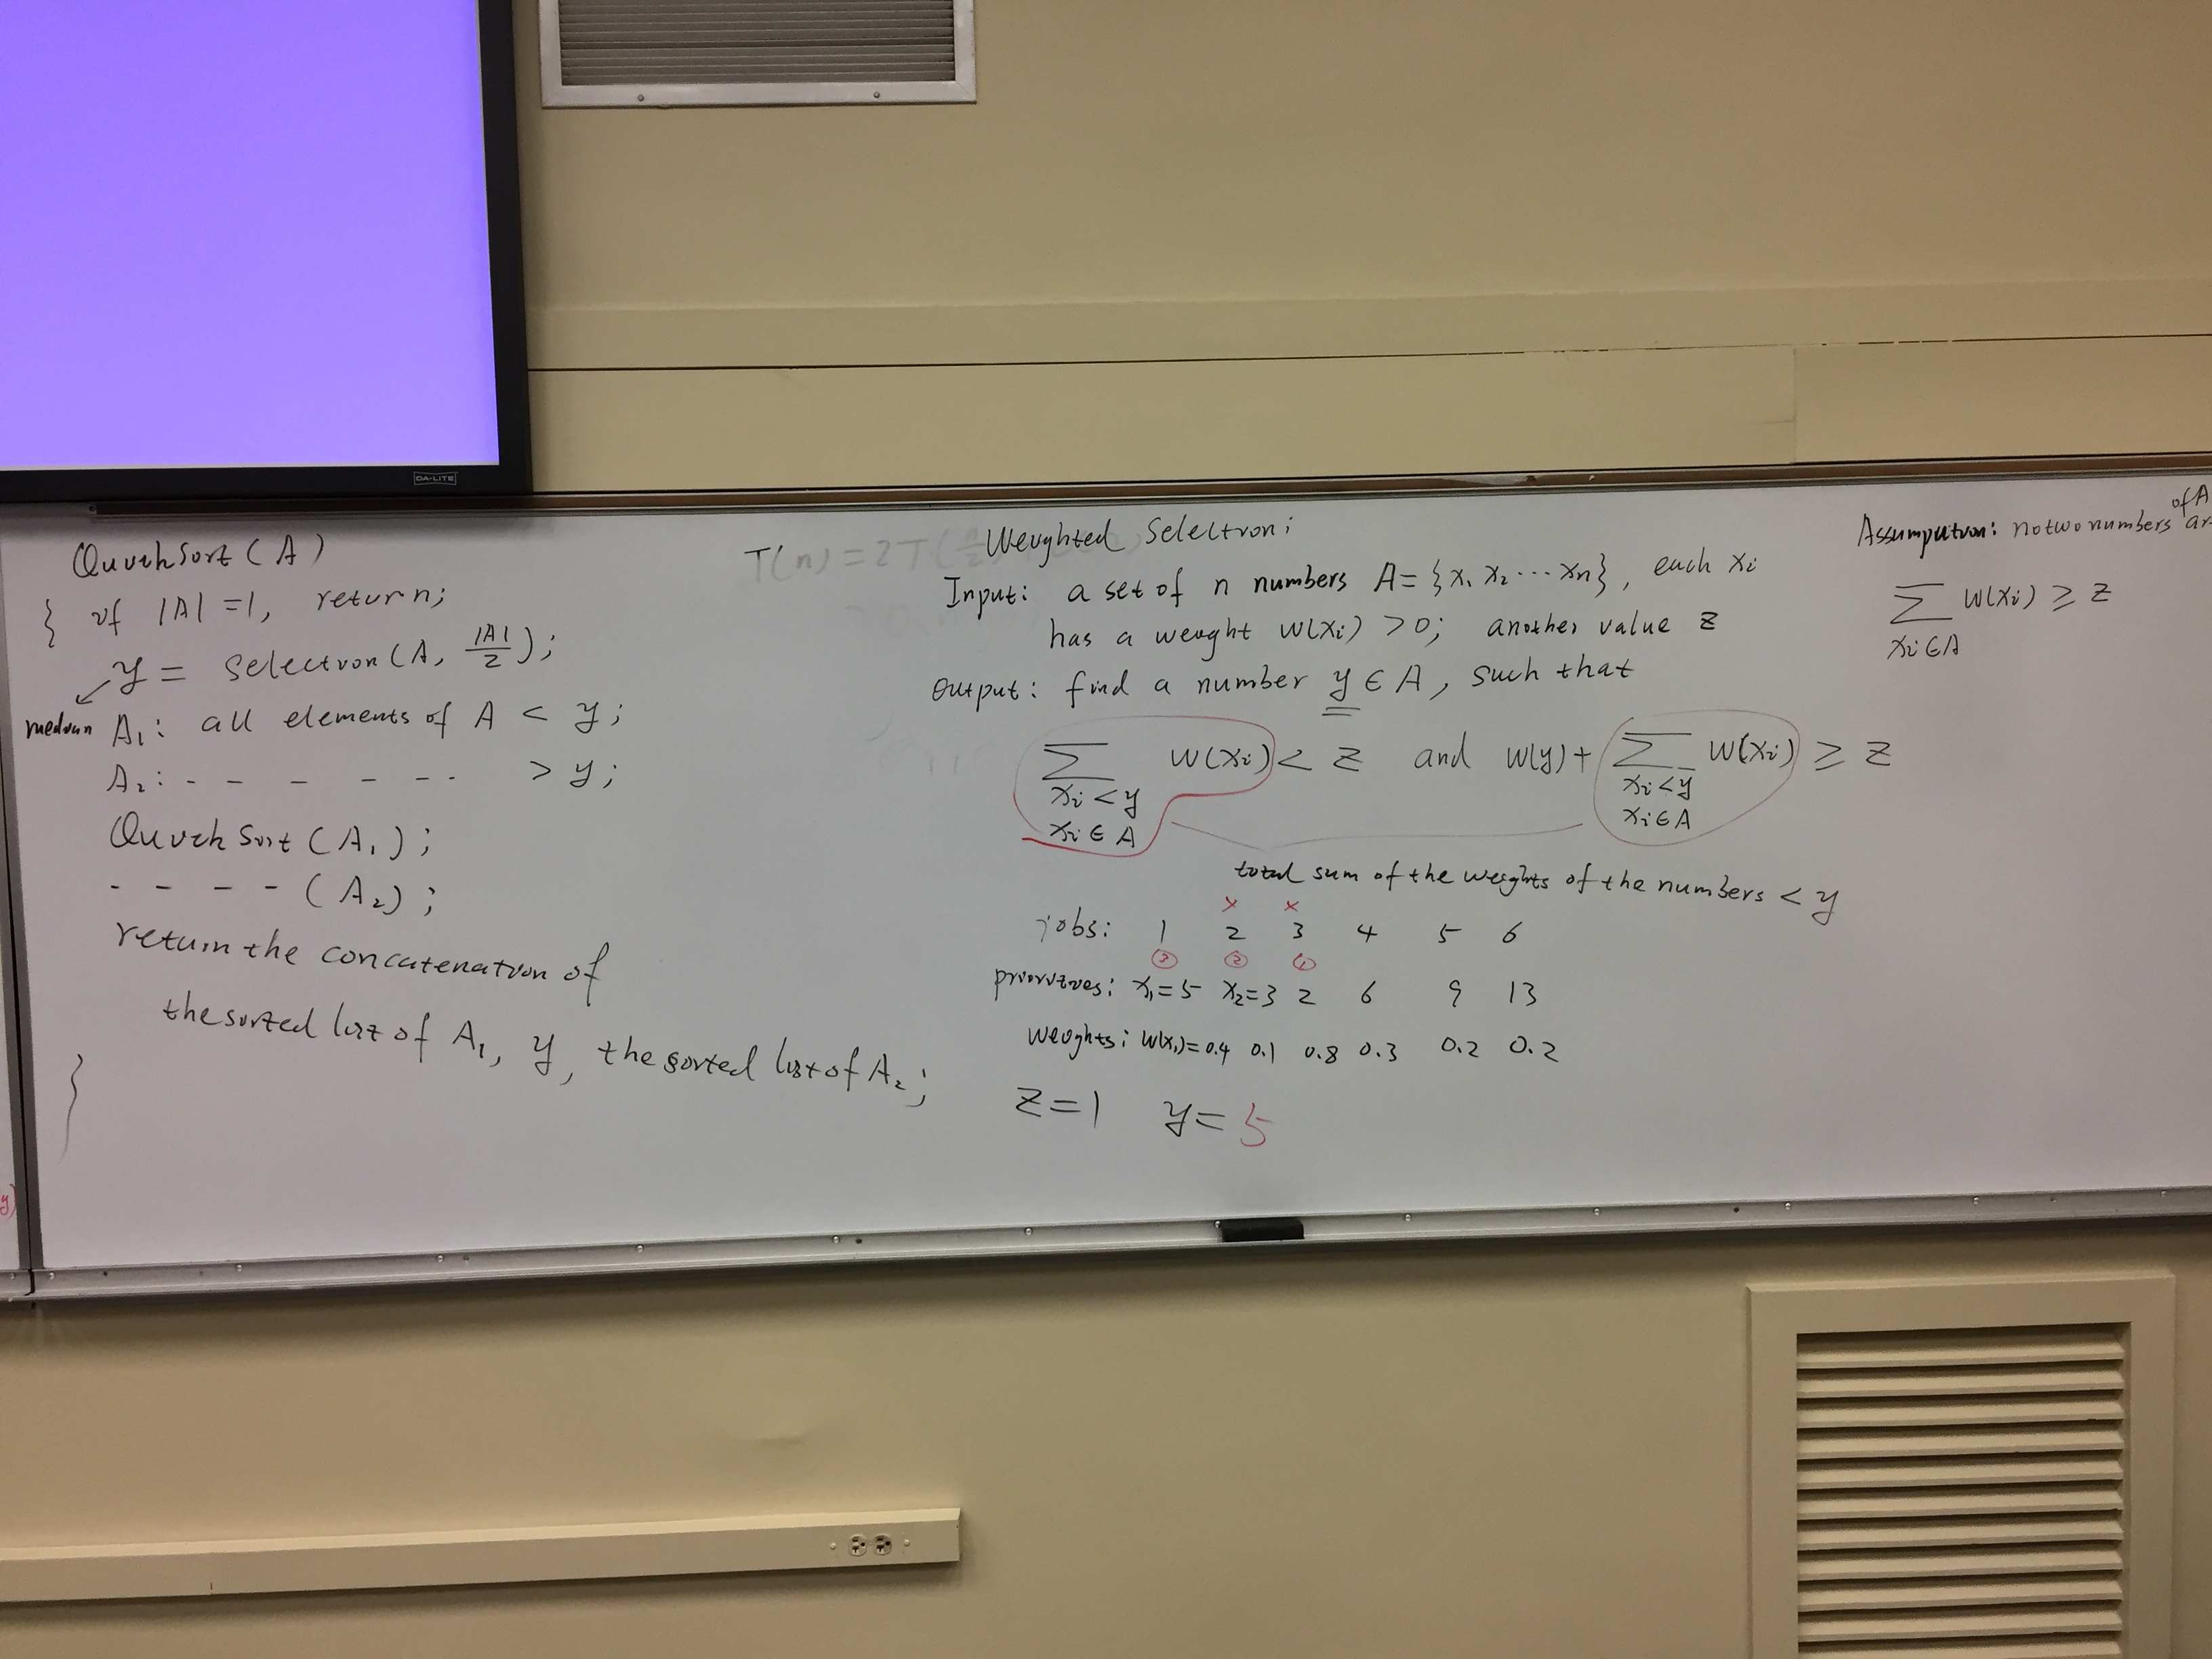 DA-LITE
QuickSort (A)
{ if |A| = 1, return;
y = Selection (A, |A|/2);
median
A₁: all elements of A < y;
A₂: - - - - - - > y;
QuickSort (A₁);
- - - - (A₂);
return the concatenation of
the sorted list of A₁, y, the sorted list of A₂;
}
y)
T(n) = 2T(n/2
Weighted Selection:
Input: a set of n numbers A = {x₁ x₂ ⋯ xₙ}, each xᵢ
has a weight w(xᵢ) > 0; another value z
Output: find a number y ∈ A, such that
∑ w(xᵢ) < z and w(y) + ∑ w(xᵢ) ≥ z
xᵢ < y xᵢ < y
xᵢ ∈ A xᵢ ∈ A
total sum of the weights of the numbers < y
x x
jobs: 1 2 3 4 5 6
③ ② ①
priorities: x₁=5 x₂=3 2 6 9 13
weights: w(x₁)=0.4 0.1 0.8 0.3 0.2 0.2
z = 1 y = 5
Assumption: no two numbers of A ar
∑ w(xᵢ) ≥ z
xᵢ ∈ A